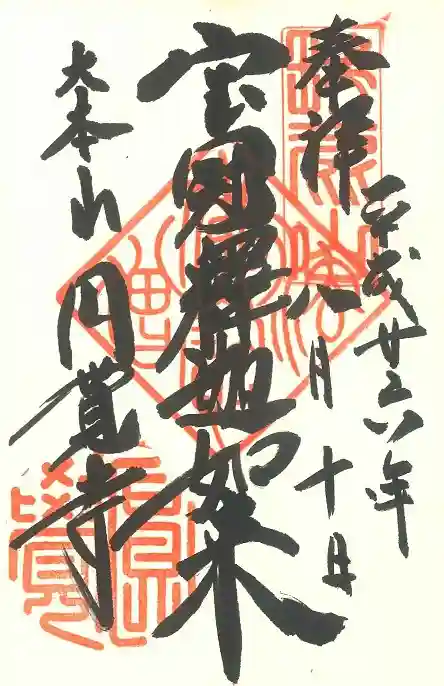 奉拝
平成廿六年
八月十日
宝冠釋迦如来
大本山
円覚寺